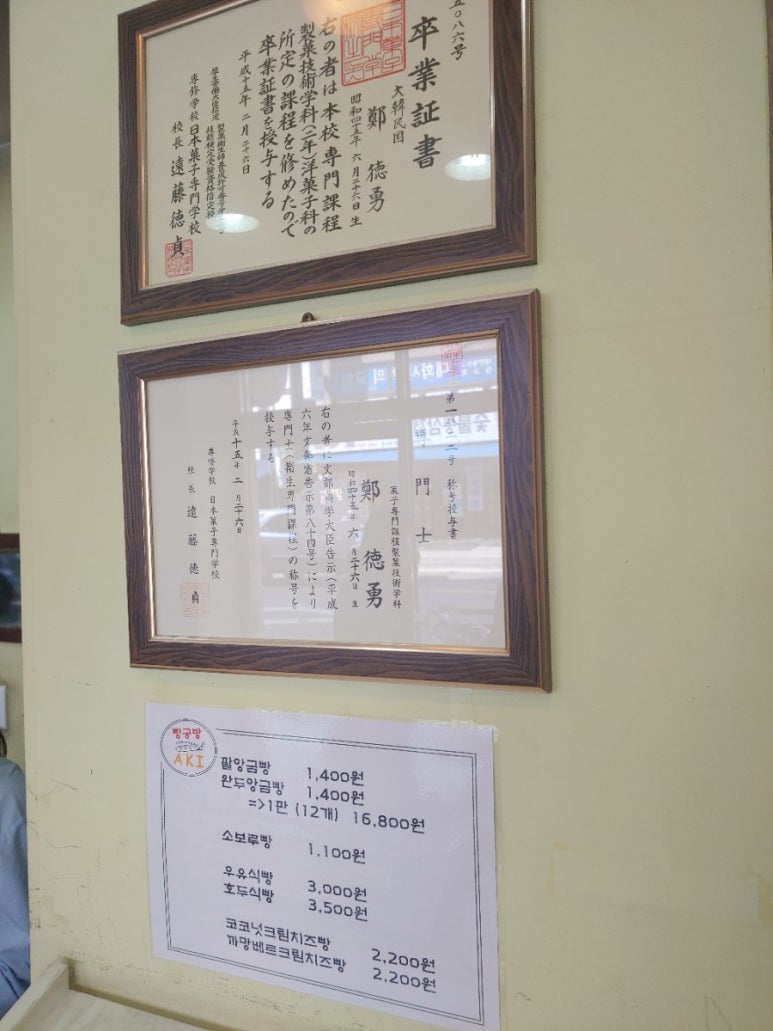 五〇八六号
卒業証書
大韓民国
鄭 徳勇
昭和四十五年 六月二十六日 生
右の者は本校専門課程
製菓技術学科(二年)洋菓子科の
所定の課程を修めたので
卒業証書を授与する
平成十五年 二月二十六日
専修学校 日本菓子専門学校
校長 遠藤徳貞
称号授与書
門士
菓子専門課程製菓技術学科
鄭 徳勇
昭和四十五年 六月二十六日 生
右の者に文部科学大臣告示(平成
六年文部省告示第八十四号)により
専門士(衛生専門課程)の称号を
授与する
平成十五年 二月二十六日
専修学校 日本菓子専門学校
校長 遠藤徳貞
빵공방
AKI
팥앙금빵 1,400원
완두앙금빵 1,400원
=>1만 (12개) 16,800원
소보루빵 1,100원
우유식빵 3,000원
호두식빵 3,500원
코코넛크림치즈빵 2,200원
까망베르크림치즈빵 2,200원